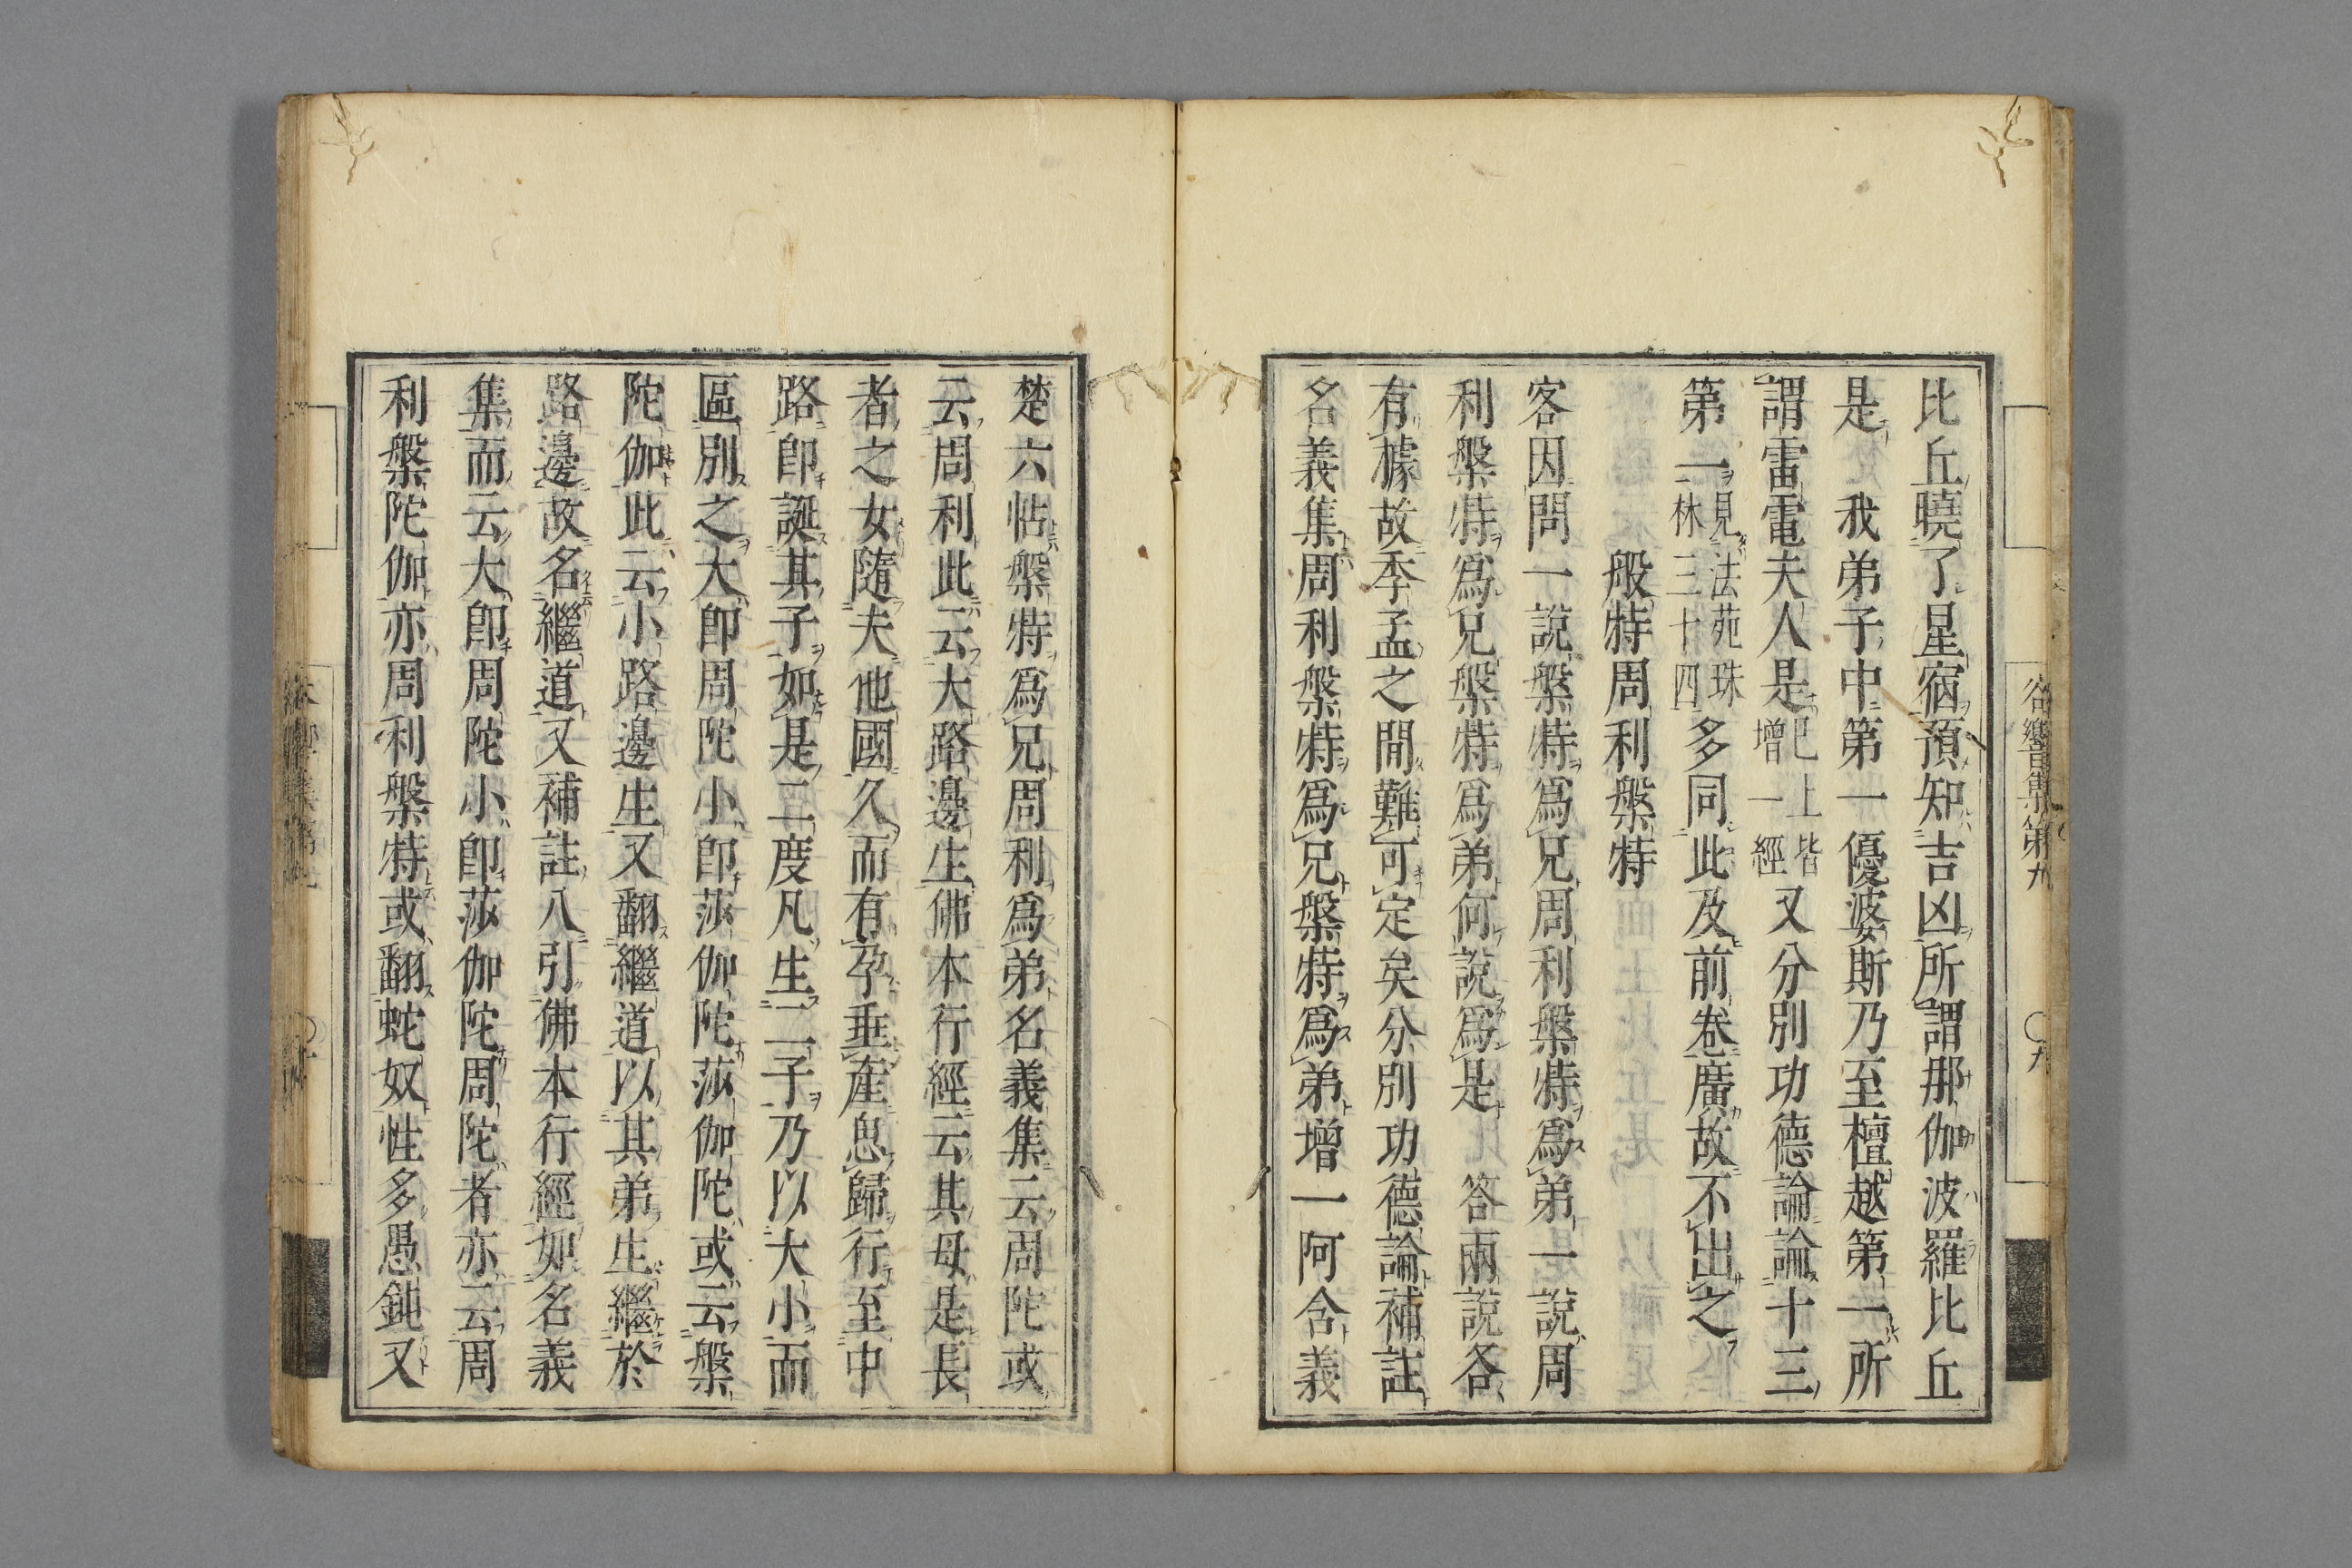 比丘曉了星宿預知吉凶所謂那伽波羅比丘
是　我弟子中第一優婆斯乃至檀越第一所
謂雷電夫人是已上皆增一經又分別功德論論十三
第一見法苑珠林三十四多同此及前卷廣故不出之
般特周利槃特
客因問一說槃特爲兄周利槃特爲弟一說周
利槃特爲兄槃特爲弟何說爲是　答兩說各
有據故季孟之間難可定矣分別功德論補註
名義集周利槃特爲兄槃特爲弟增一阿含義
楚六帖槃特爲兄周利爲弟名義集云周陀或
云周利此云大路邊生佛本行經云其母是長
者之女隨夫他國久而有孕垂產思歸行至中
路卽誕其子如是二度凡生二子乃以大小而
區別之大卽周陀小卽莎伽陀莎伽陀或云槃
陀伽此云小路邊生又翻繼道以其弟生繼於
路邊故名繼道又補註八引佛本行經如名義
集而云大卽周陀小卽莎伽陀周陀者亦云周
利槃陀伽亦周利槃特或翻蛇奴性多愚鈍又
谷響集第九
〇九